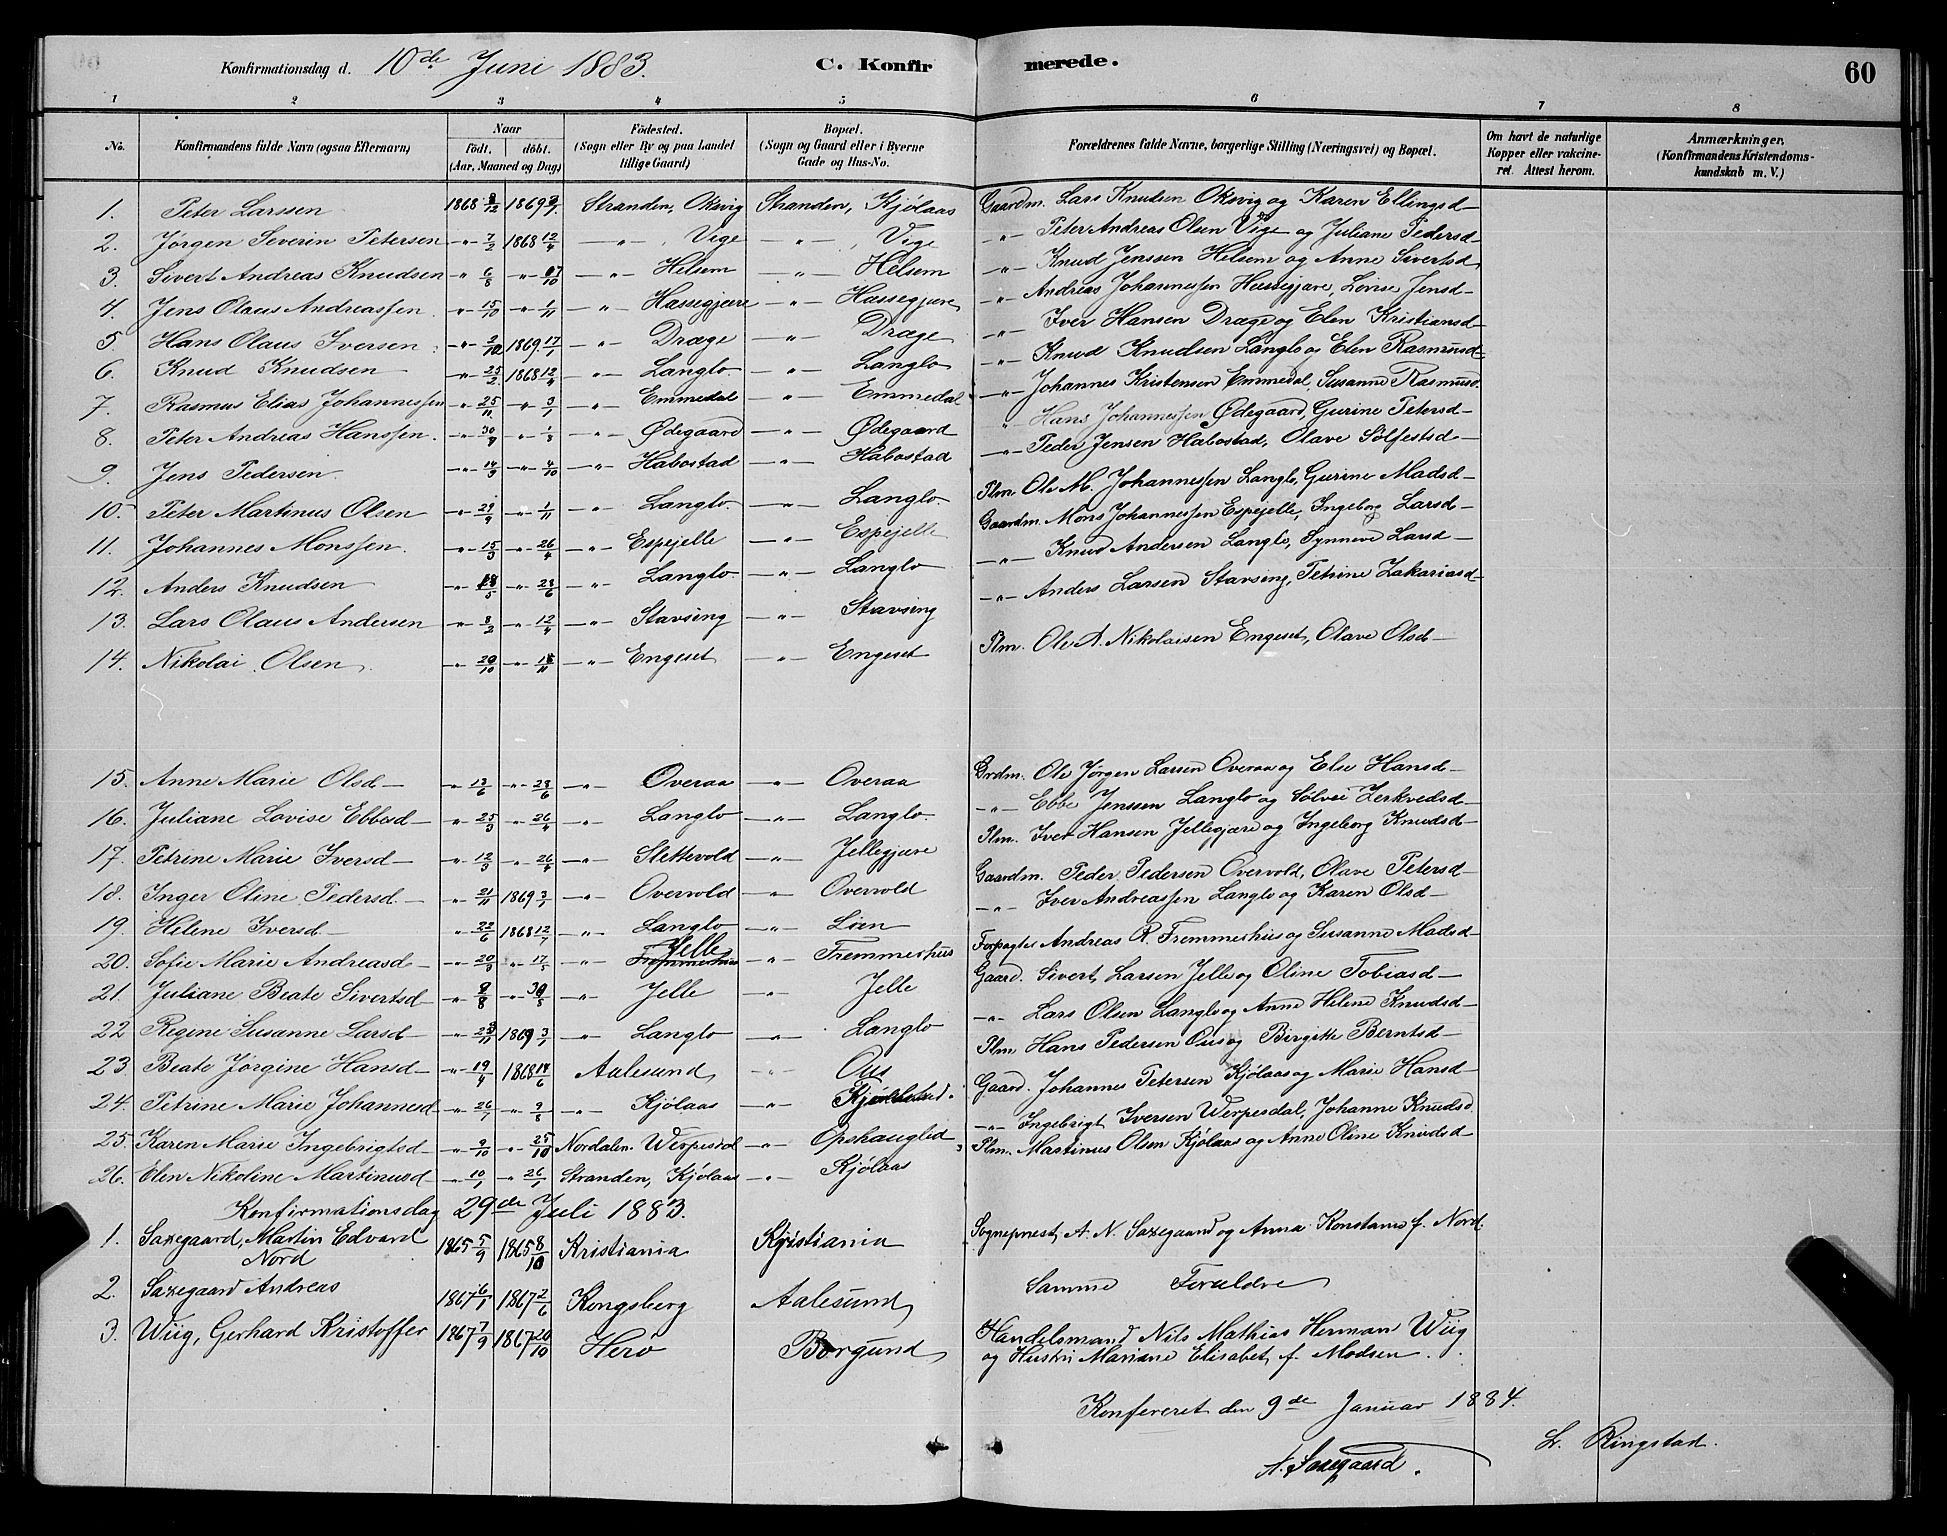 Konfirmationsdag d. 10de Juni 1883. C. Konfirmerede. 60
1 2 3 4 5 6 7 8
No. Konfirmandens fulde Navn (ogsaa Efternavn) Naar födt. döbt. (Aar, Maaned og Dag) Födested. (Sogn eller By og paa Landet tillige Gaard) Bopæl. (Sogn og Gaard eller i Byerne Gade og Hus-No. Forældrenes fulde Navne, borgerlige Stilling (Næringsvei) og Bopæl. Om havt de naturlige Kopper eller vakcineret. Attest herom. Anmærkninger. (Konfirmandens Kristendomskundskab m. V.)
1. Peter Larssen 1868 1869 Stranden, Oksvig Stranden, Kjølaas Gaardm. Lars Knudsen Oksvig og Karen Ellingsd
2. Jørgen Severin Petersen -"- 7/2 1868 12/4 -"- , Vige -"- , Vige -"- Peter Andreas Olsen Vige og Juliane Pedersd
3. Sivert Andreas Knudsen " 6/8 -"- 17/10 -"- Helsem -"- Helsem -"- Knud Jenssen Helsem og Anne Sivertsd
4. Jens Olaus Andreassen -"- 15/10 -"- 1/11 -"- Hassegjære -"- Hassegjære -"- Andreas Johannessen Hassegjære, Lovise Jensd
5. Hans Olaus Iversen -"- 1869 17/1 -"- Dræge -"- Dræge -"- Iver Hansen Dræge og Elen Kristiansd
6. Knud Knudsen -"- 25/2 1868 12/4 -"- Langlo -"- Langlo -"- Knud Knudsen Langlo og Elen Rasmusd
7. Rasmus Elias Johannessen -"- 25/11 -"- 3/1 -"- Emmedal -"- Emmedal -"- Johannes Kristensen Emmedal, Susanne Rasmusd.
8. Peter Andreas Hanssen. -"- -"- -"- Ødegaard -"- Ødegaard " Hans Johannessen Ødegaard, Gurine Petersd
9. Jens Pedersen -"- 14/9 -"- 4/10 -"- Habostad -"- Habostad -"- Peder Jensen Habostad, Olave Sølfestsd
10. Peter Martinus Olsen -"- 29/9 -"- 1/11 -"- Langlo. -"- Langlo. Plm. Ole M. Johannessen Langlo, Gurine Madsd
11. Johannes Monssen. -"- 15/3 -"- 26/4 -"- Espejelle -"- Espejelle Gaardm. Mons Johannessen Espejelle, Ingeborg Larsd
12. Anders Knudsen -"- 18/5 -"- 28/6 -"- Langlo. -"- Langlo -"- Knud Andersen Langlo, Synneve Larsd
13. Lars Olaus Andersen -"- 8/2 -"- 12/4 -"- Stavsing -"- Stavsing -"- Anders Larsen Stavsing, Petrine Zakariasd
14. Nikolai Olsen -"- 20/10 -"- 18/11 -"- Engeset -"- Engeset Plm. Ole A. Nikolaisen Engeset, Olave Olsd
15. Anne Marie Olsd -"- 13/6 -"- 28/6 -"- Overaa -"- Overaa Grdm. Ole Jørgen Larsen Overaa og Else Hansd
16. Juliane Lovise Ebbesd -"- 25/3 -"- 26/4 -"- Langlo -"- Langlo. -"- Ebbe Jenssen Langlo og Sølvei
17. Petrine Marie Iversd -"- 12/3 -"- 26/4 -"- Slettevold -"- Jellegjære Plm. Iver Hansen Jellegjære og Ingeborg Knudsd
18. Inger Oline Pedersd -"- 21/11 1869 3/1 -"- Overvold -"- Overvold Gaardm. Peder Pedersen Overvold, Olave Petersd
19. Helene Iversd " 22/6 1868 12/7 -"- Langlo -"- Lien -"- Iver Andreassen Langlo og Karen Olsd
20. Sofie Marie Andreasd -"- 20/3 " 17/5 -"- Jelle -"- Fremmerhus Forpagter Andreas R. Fremmerhus og Susanne Madsd
21. Juliane Beate Sivertsd -"- -"- 30/8 -"- Jelle -"- Jelle Gaard. Sivert Larsen Jelle og Oline Tobiasd
22 Regine Susanne Larsd -"- 1869 3/1 -"- Langlo -"- Langlo -"- Lars Olsen Langlo og Anne Helene Knudsd
23. Beate Jørgine Hansd -"- 19/4 1868 14/6 Aalesund -"- Ous Plm. Hans Pedersen Ous og Birgitte Berntsd
24. Petrine Marie Johannesd -"- 26/7 -"- 9/8 -"- Kjölaas -"- Gaard. Johannes Petersen Kjölaas og Marie Hansd
25. Karen Marie Ingebrigtsd -"- 9/10 -"- 25/10 Nordalen. Werpesdal -"- Opshauglid -"- Ingebrigt Iversen Werpesdal, Johanne Knudsd
26. Elen Nikoline Martinusd -"- 10/1 " 26/1 Stranden, Kjölaas -"- Kjölaas Plm. Martinus Olsen Kjölaas og Anne Oline Knudsd
Konfirmationsdag 29de Juli 1883.
1. Saxegaard, Martin Edvard 1865 5/9 1865 8/10 Kristiania Kristiania Sogneprest A. N. Saxegaard og Anna Konstanse f. Nord.
Nord
2. Saxegaard Andreas 1867 6/1 1867 2/6 Kongsberg Aalesund Samme Foreldre
3. Wiig, Gerhard Kristoffer 1867 7/9 1867 20/10 Herö Borgund Handelsmand Nils Mathias Herman Wiig
og Hustru Mariane Elisabet f. Madsen.
Konfereret den 9de Januar 1884.
L. Ringstad.
A. Saxegaard.